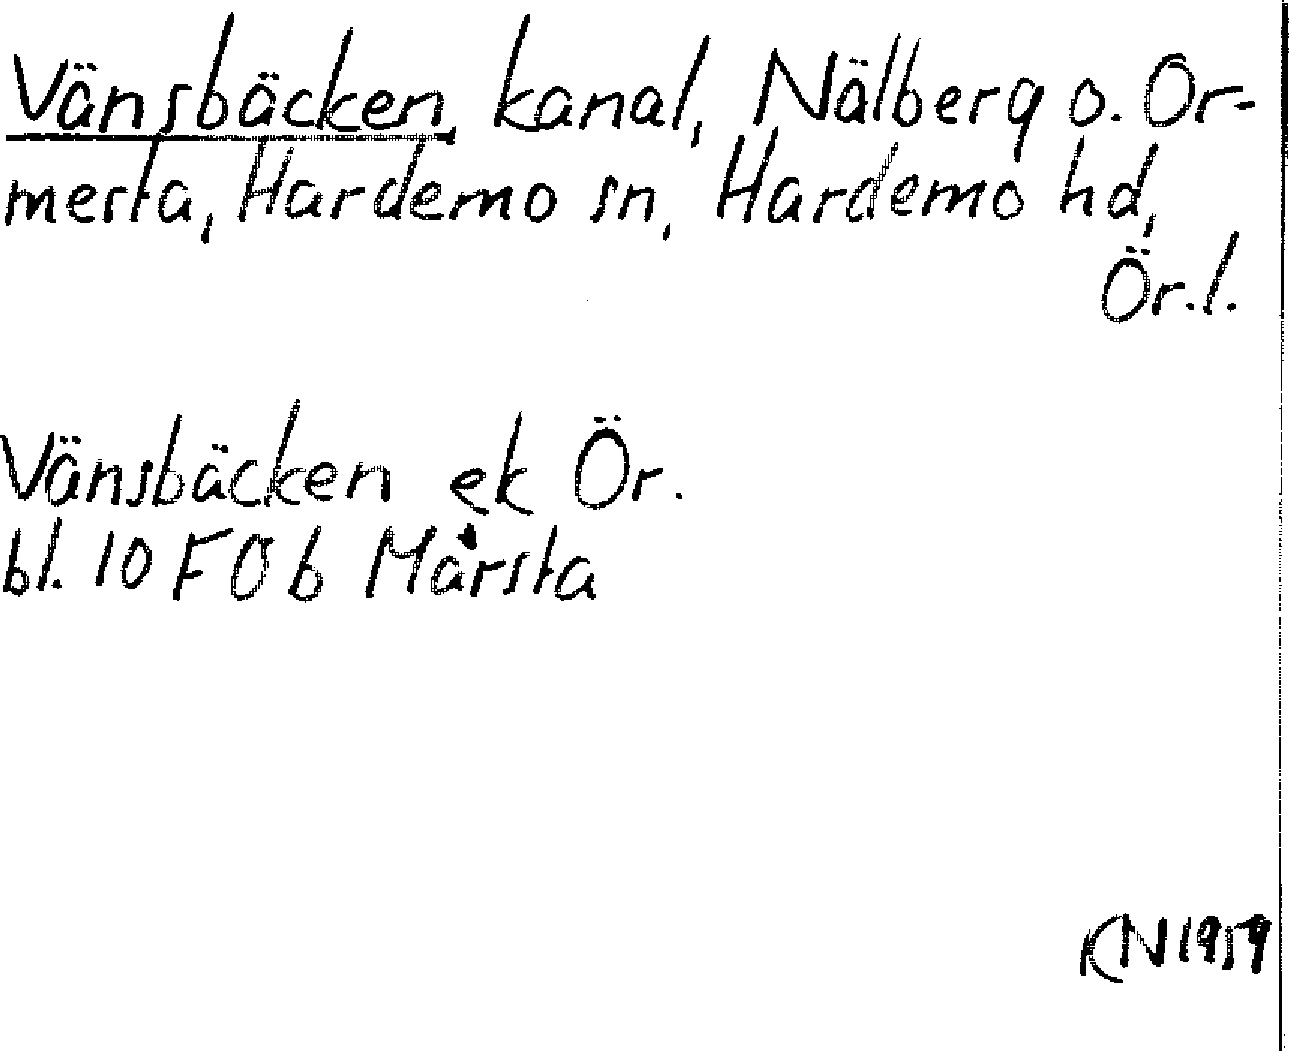 Vänsbäcken, kanal, Nälberg o. Or-
mesta, Hardemo sn, Hardemo hd,
Ör.l.
Vänsbäcken ek Ör.
bl. 10 F 0 b Mårsta
KN 1959